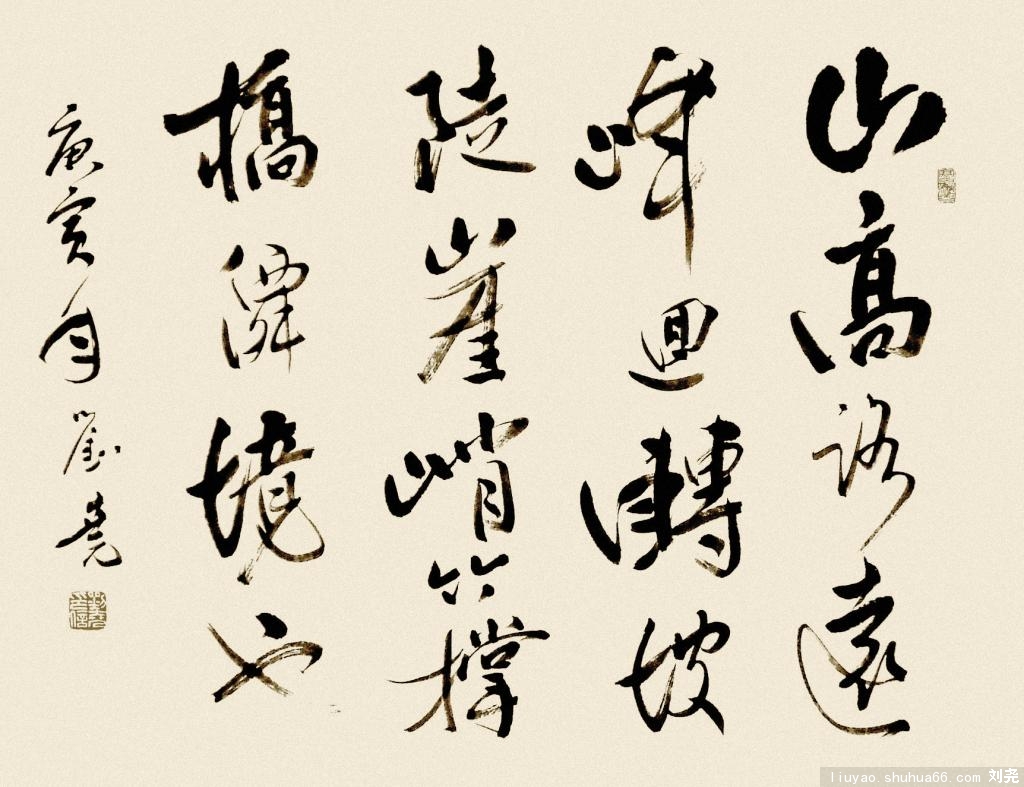 山高路遠
峰迴轉坡
陡崖峭六撐
橋僊境也
庚寅年劉堯
liuyao.shuhua66.com 刘尧